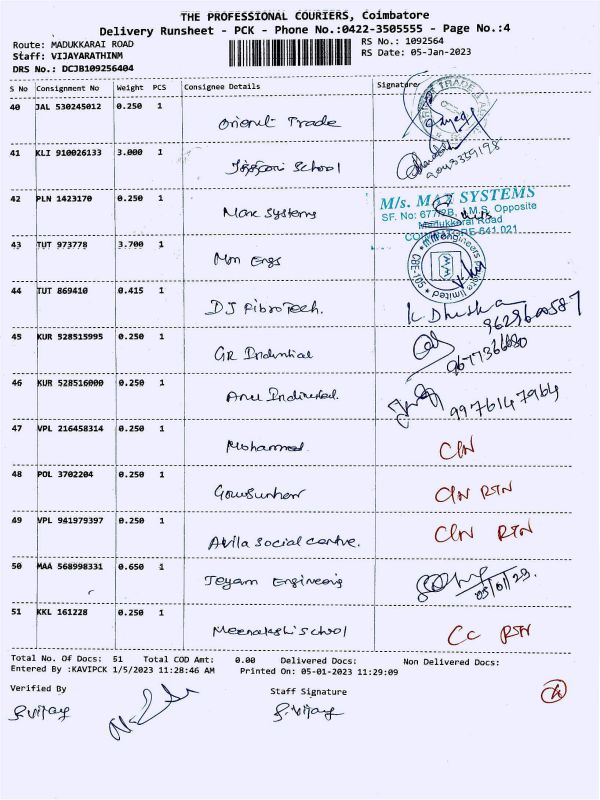 THE PROFESSIONAL COURIERS, Coimbatore
Delivery Runsheet - PCK - Phone No.:0422-3505555 - Page No.:4
Route: MADUKKARAI ROAD RS No.: 1092564
Staff: VIJAYARATHINM RS Date: 05-Jan-2023
DRS No.: DCJB109256404
S No Consignment No Weight PCS Consignee Details Signature
40 JAL 530245012 0.250 1 Orient Trade
41 KLI 910026133 3.000 1 School
42 PLN 1423170 0.250 1 Max Systems
M/s. MAX SYSTEMS
SF. No: 677/2B, J.M.S. Opposite
Madukkarai Road
COIMBATORE-641 021
43 TUT 973778 3.700 1 Mm Engs
44 TUT 869410 0.415 1 DJ FibroTech. K. Dhisha
9629600587
45 KUR 528515995 0.250 1 GR
46 KUR 528516000 0.250 1 9976147964
47 VPL 216458314 0.250 1 Mohammed
48 POL 3702204 0.250 1 RTN
49 VPL 941979397 0.250 1 Avila Social centre. RTN
50 MAA 568998331 0.650 1 Jeyam Engineering 05/01/23.
51 KKL 161228 0.250 1 Meenakshi School CC RTN
Total No. Of Docs: 51 Total COD Amt: 0.00 Delivered Docs: Non Delivered Docs:
Entered By :KAVIPCK 1/5/2023 11:28:46 AM Printed On: 05-01-2023 11:29:09
Verified By Staff Signature
S.Vijay S.Vijay